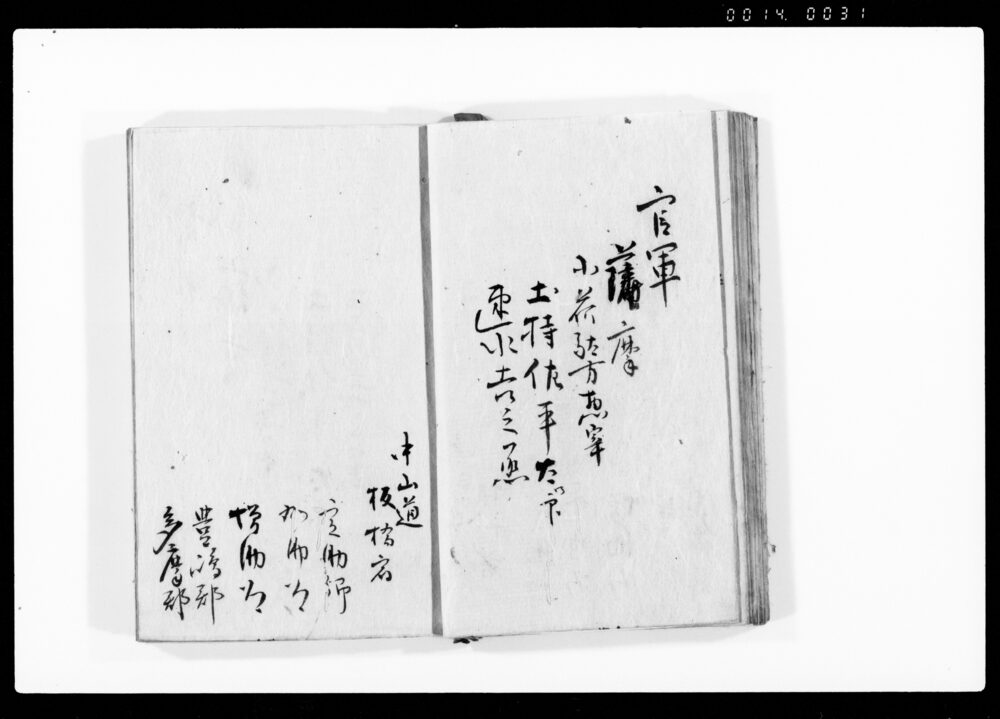 0014. 0031
官軍
薩摩
小荷駄方惣宰
土持佐平太
速水吉之
中山道
板橋宿
定助郷
加助郷
増助郷
豊嶋郡
多摩郡